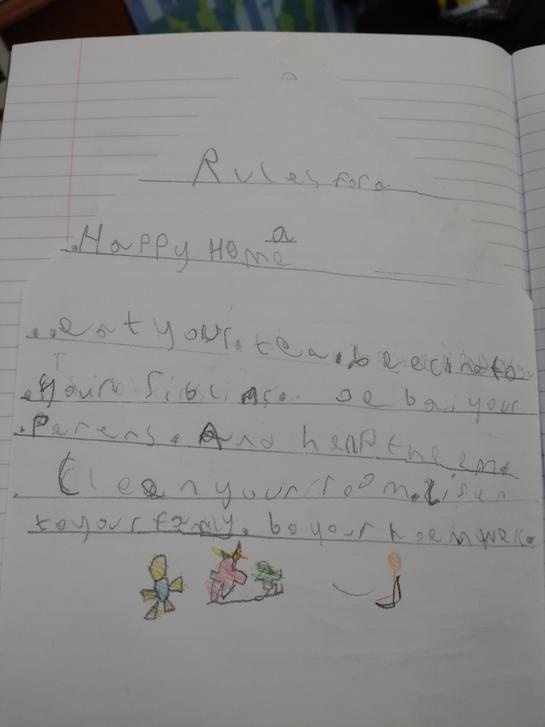 Rules for a
Happy Home
a
eat your tea. be ecind to
your siblings. oe bai your
Perens. And help them
Clean your room. Lisen
to your famly. bo your hoemwerc.